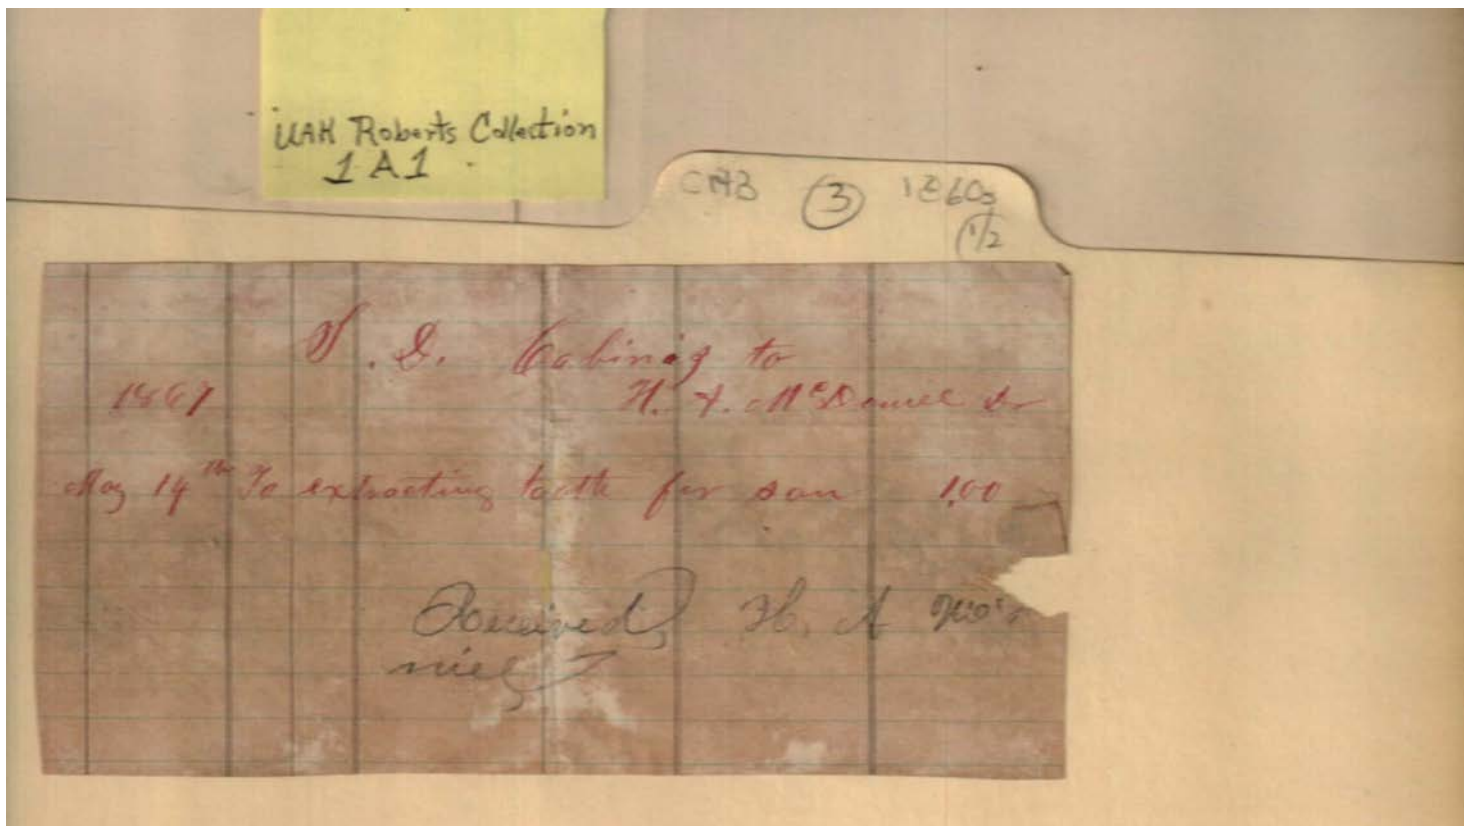 UAH Roberts Collection
1A1
CAB ③ 1860s
1/2
S. D. Cabiniss to
1867 H. A. McDonnell Dr
May 14th To extracting tooth for son 1.00
Received, H. A